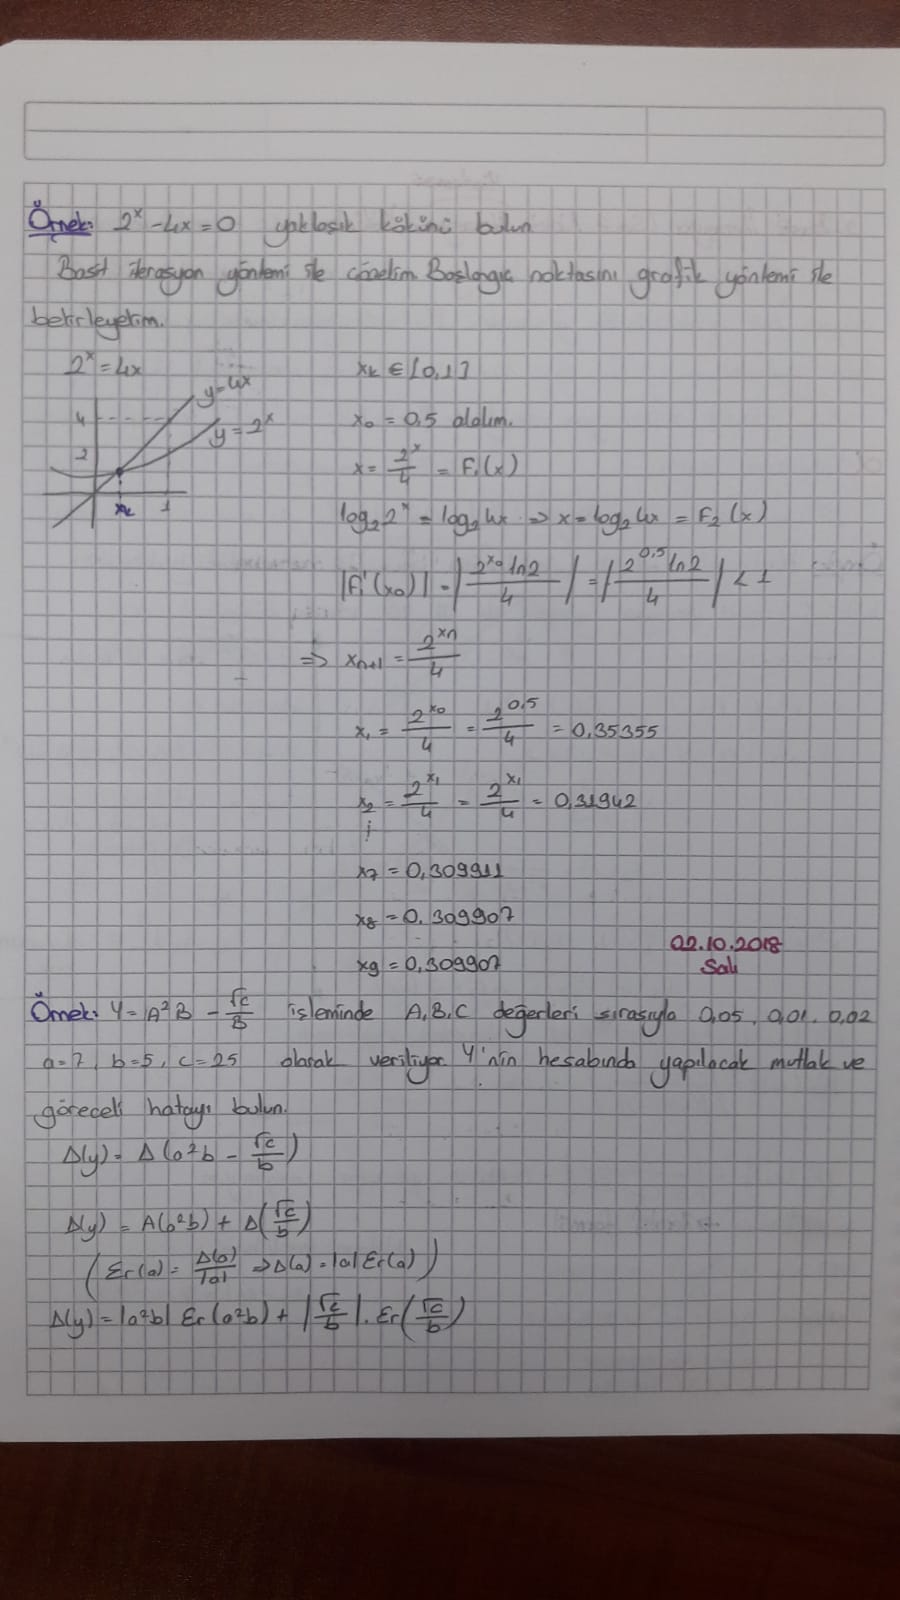 Örnek: 2^x - 4x = 0 yaklaşık kökünü bulun
Basit iterasyon yöntemi ile çözelim. Başlangıç noktasını grafik yöntemi ile
belirleyelim.
2^x = 4x
xk ∈ [0,1]
y=4x
4
x0 = 0,5 alalım.
y=2^x
2
x = 2^x/4 = F1(x)
xk 1
log2 2^x = log2 4x ⇒ x = log2 4x = F2(x)
|F1'(x0)| = |2^x0 ln2/4| = |2^0,5 ln2/4| < 1
⇒ xn+1 = 2^xn/4
x1 = 2^x0/4 = 2^0,5/4 = 0,35355
x2 = 2^x1/4 = 2^x1/4 = 0,31942
⋮
x7 = 0,309911
x8 = 0,309907
x9 = 0,309907
02.10.2018
Salı
Örnek: Y = A²B - √c/B işleminde A,B,C değerleri sırasıyla 0,05, 0,01, 0,02
a=7, b=5, c=25 olarak veriliyor. Y'nin hesabında yapılacak mutlak ve
göreceli hatayı bulun.
Δ(y) = Δ(a²b - √c/b)
Δ(y) = Δ(a²b) + Δ(√c/b)
(Er(a) = Δ(a)/|a| ⇒ Δ(a) = |a| Er(a))
Δ(y) = |a²b| Er(a²b) + |√c/b| . Er(√c/b)